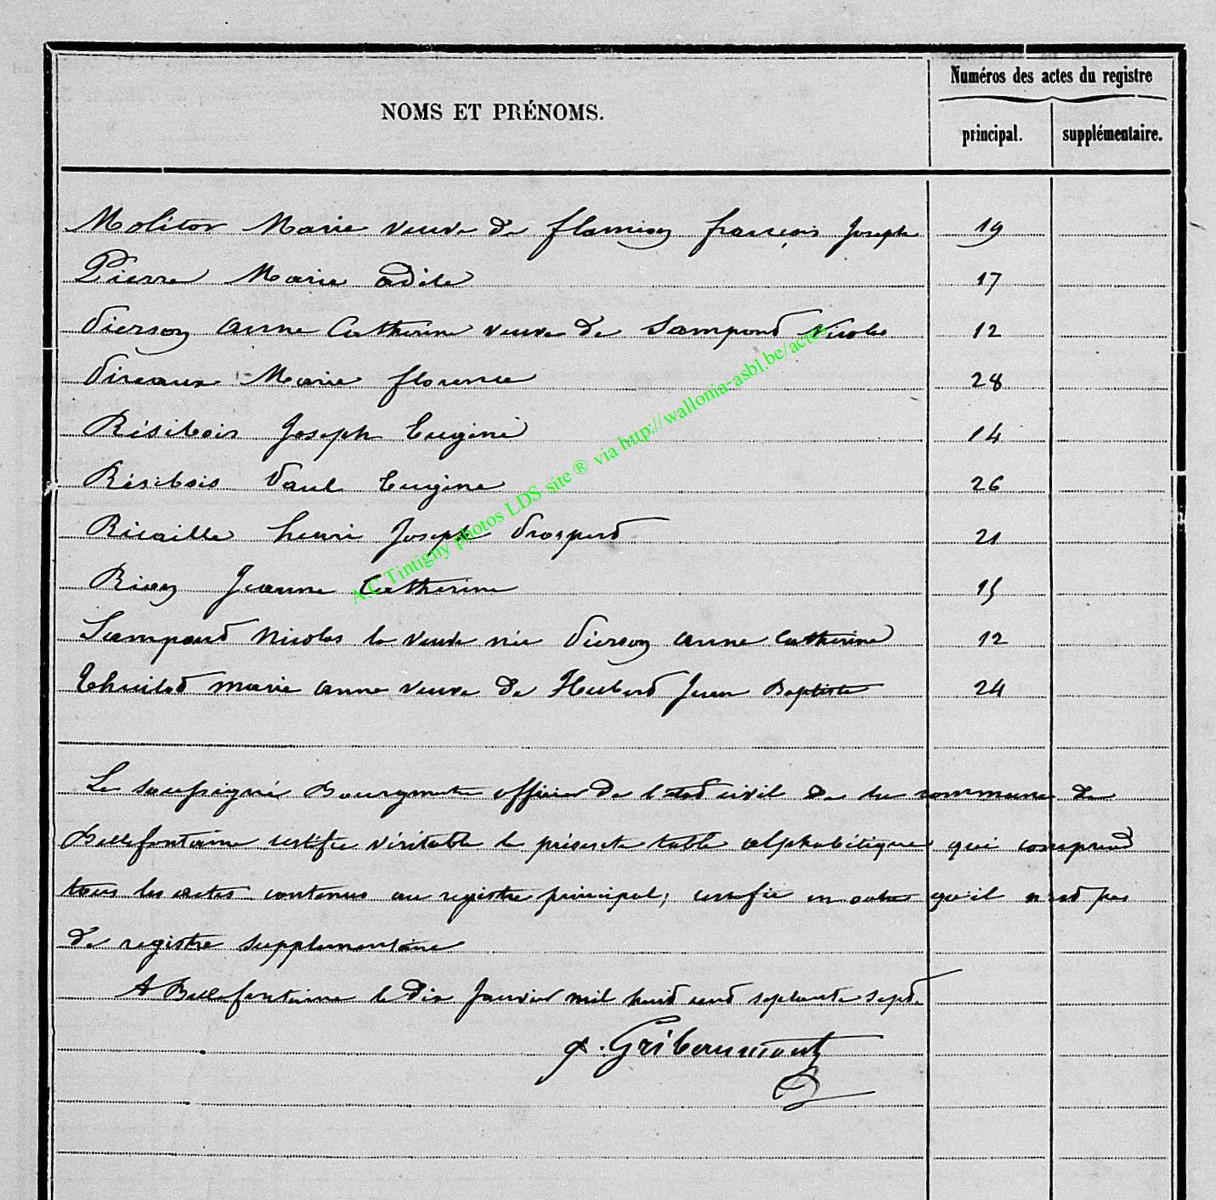 Numéros des actes du registre
NOMS ET PRÉNOMS.
principal. supplémentaire.
Molitor Marie veuve de flamion françois Joseph 19
Pierre Marie adèle 17
Pierson anne Catherine veuve de Sampond Nicolas 12
Pireaux Marie florence 28
Résibois Joseph Eugène 14
Résibois Paul Eugène 26
Ricaille henri Joseph Prosperd 21
Rion Jeanne Catherine 15
Sampond Nicolas la veuve née Pierson anne Catherine 12
marie anne veuve de Huberd Jean Baptiste 24
Le soussigné Bourgmestre officier de l'etad civil de la commune de
Bellefontaine certifie véritable la présente table alphabétique qui comprend
tous les actes contenus au registre principal; certifie en outre qu'il n'est pas
de registre supplementaire
A Bellefontaine le dix Janvier mil huid cend septante sept.
Gribaumont
A.C Tintigny photos LDS site ® via http://wallonia-asbl.be/actes